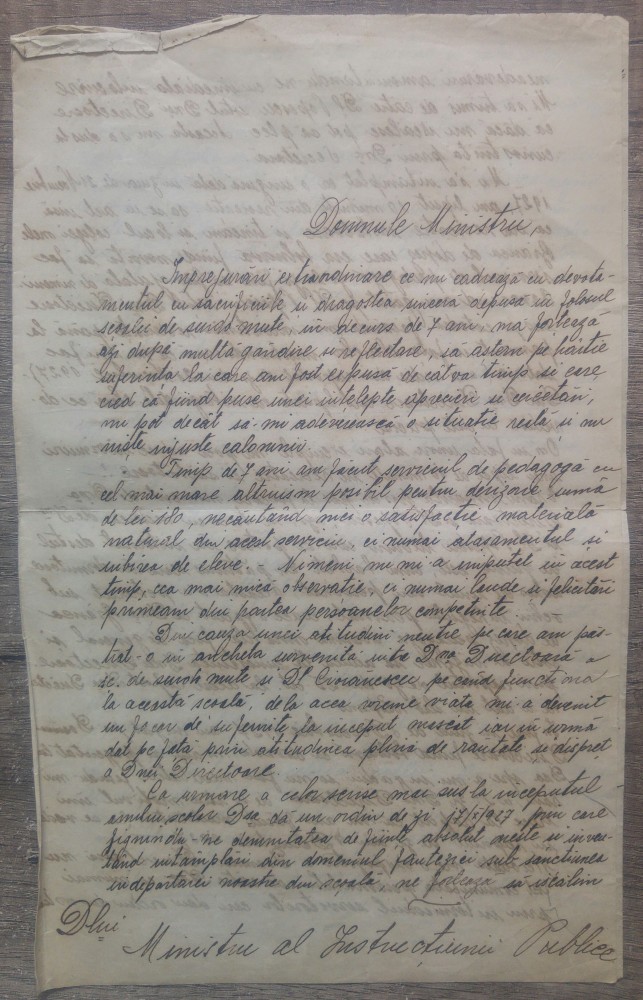 Domnule Ministru,
Împrejurări extraordinare ce nu cadrează cu devota-
mentul cu sacrificiile și dragostea sinceră depusă în folosul
școalei de surdo mute, în decurs de 7 ani, mă forțează
azi după multă gândire și reflectare, să aștern pe hârtie
suferința la care am fost expusă de câtva timp și care
cred că fiind puse unei înțelepte aprecieri și cercetări,
nu pot decât să-mi adeverească o situație reală și nu
niște injuste calomnii.
Timp de 7 ani am facut serviciul de pedagogă cu
cel mai mare altruism posibil pentru derizorie sumă
de lei 180, necăutând nici o satisfacție materială
natural din acest serviciu, ci numai atașamentul și
iubirea de eleve. - Nimeni nu mi-a imputat în acest
timp, cea mai mică observație, ci numai laude și felicitări
primeam din partea persoanelor competinte.
Din cauza unei atitudini neutre, pe care am păs-
trat-o în ancheta survenită între Dna Directoară a
șc. de surdo mute și Dl Cioranescu pe când funcționa
la această școală, dela acea vreme viața mi-a devenit
un focar de suferinți, la inceput mascat iar în urmă
dat pe față prin atitudinea plină de rautate și dispreț
a Dnei Directoare.
Ca urmare a celor scrise mai sus la inceputul
anului școlar Dsa dă un ordin de zi 17/X/927, prin care
jignindu-ne demnitatea de ființi absolut oneste și inven-
tând intamplări din domeniul fanteziei sub sancțiunea
indepartarei noastre din școală, ne forțează să iscălim
Dlui
Ministru al Instrucțiunii Publice